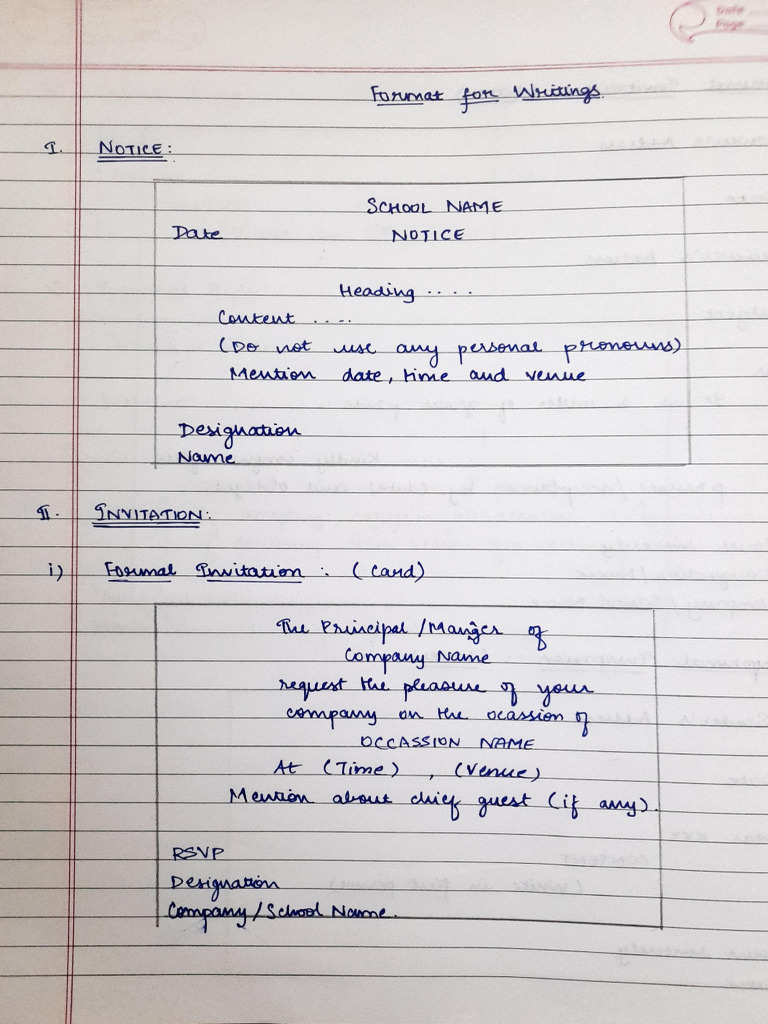 Date
Page
Format for Writings
I. NOTICE:
SCHOOL NAME
Date NOTICE
Heading ....
Content ....
(Do not use any personal pronouns)
Mention date, time and venue
Designation
Name
II. INVITATION:
i) Formal Invitation : (Card)
The Principal /Manager of
Company Name
request the pleasure of your
company on the ocassion of
OCCASSION NAME
At (Time) , (Venue)
Mention about chief guest (if any).
RSVP
Designation
Company/School Name.